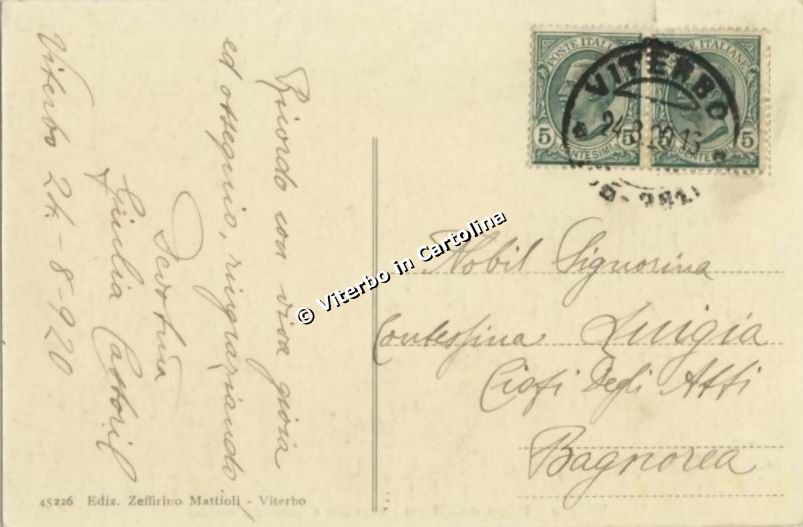 POSTE ITALIANE
5 CENTESIMI 5
VITERBO
24.8.20.13
Viterbo 24-8-920
Ricordo con viva gioia
ed ossequio, ringraziando
Devot.ma
Giulia
Nobil Signorina
Contessina Luigia
Ciofi Degli Atti
Bagnorea
© Viterbo in Cartolina
45226 Ediz. Zeffirino Mattioli - Viterbo